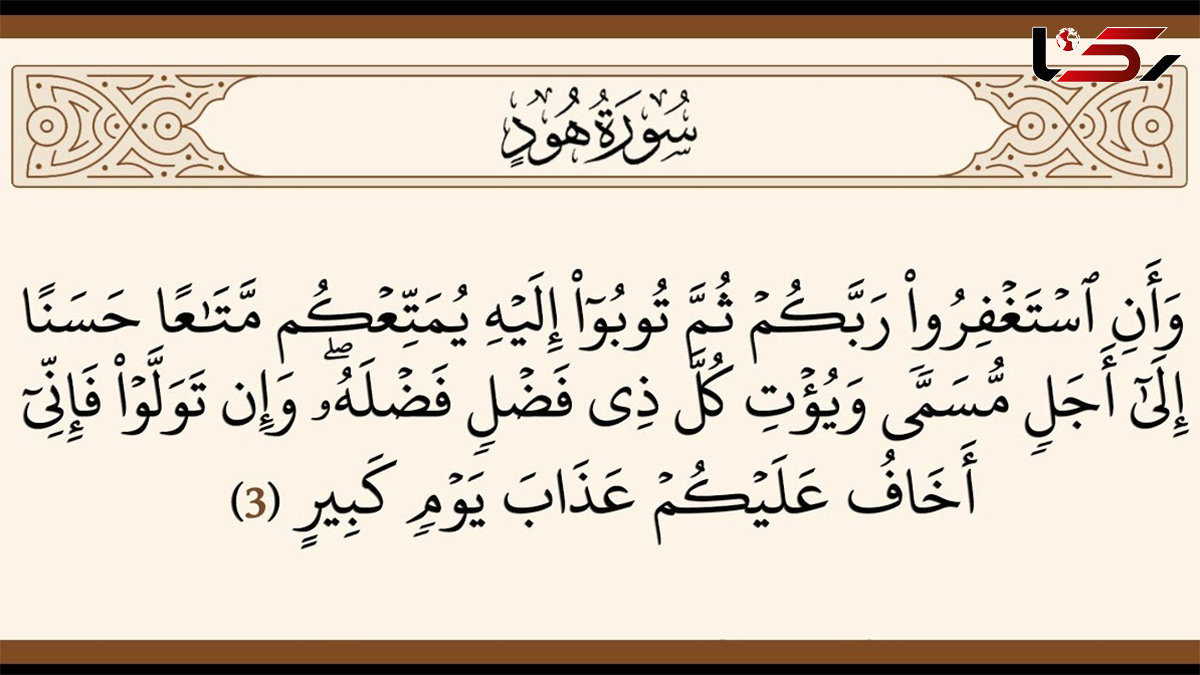 رکنا
سُورَةُ هُودٍ
وَأَنِ ٱسۡتَغۡفِرُواْ رَبَّكُمۡ ثُمَّ تُوبُوٓاْ إِلَيۡهِ يُمَتِّعۡكُم مَّتَٰعًا حَسَنًا
إِلَىٰٓ أَجَلٖ مُّسَمّٗى وَيُؤۡتِ كُلَّ ذِى فَضۡلٖ فَضۡلَهُۥۖ وَإِن تَوَلَّوۡاْ فَإِنِّىٓ
أَخَافُ عَلَيۡكُمۡ عَذَابَ يَوۡمٖ كَبِيرٍ (3)